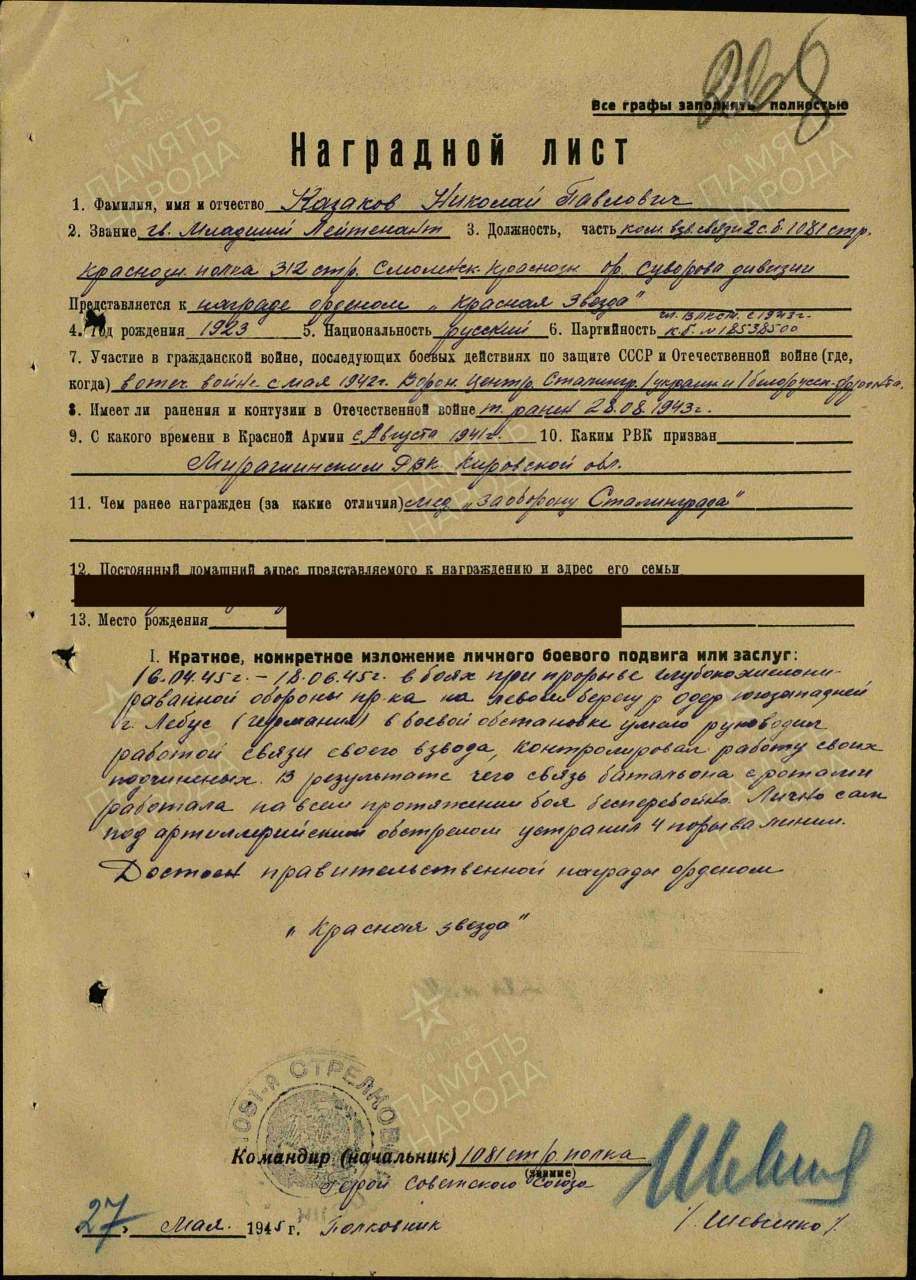 268
Все графы заполнять полностью
Наградной лист
1. Фамилия, имя и отчество Казаков Николай Павлович
2. Звание гв. Младший Лейтенант 3. Должность, часть ком. взв. связи 2 с.б. 1081 стр.
Краснозн. полка 312 стр. Смоленск. Краснозн ор. Суворова дивизии
Представляется к награде орденом „Красная Звезда"
чл. ВЛКСМ. с 1943 г.
4. Год рождения 1923 5. Национальность русский 6. Партийность к.б. № 18538500
7. Участие в гражданской войне, последующих боевых действиях по защите СССР и Отечественной войне (где,
когда) в отеч войне с мая 1942 г. Ворон. Центр. Сталингр. 1 украин и 1 белорусск.
8. Имеет ли ранения и контузии в Отечественной войне т. ранен 28.08.1943 г.
9. С какого времени в Красной Армии с Августа 1941 г. 10. Каким РВК призван
РВК Кировской обл.
11. Чем ранее награжден (за какие отличия) мед „За оборону Сталинграда"
12. Постоянный домашний адрес представляемого к награждению и адрес его семьи
13. Место рождения
I. Краткое, конкретное изложение личного боевого подвига или заслуг:
16.04.45 г. – 18.06.45 г. в боях при прорыве глубокоэшелони-
рованной обороны пр-ка на левом берегу р Одер югозападней
г. Лебус (Германия) в боевой обстановке умело руководил
работой связи своего взвода, контролировал работу своих
подчиненых. В результате чего связь батальона с ротами
работала на всем протяжении боя бесперебойно. Лично сам
под артиллерийским обстрелом устранил 4 порыва линии.
Достоен правительственной награды орденом
„Красная звезда"
1081-й СТРЕЛКОВ
Командир (начальник) 1081 стр. полка
(звание)
Герой Советского Союза
27 Мая 1945 г. Полковник / Шевченко /
ПАМЯТЬ
НАРОДА